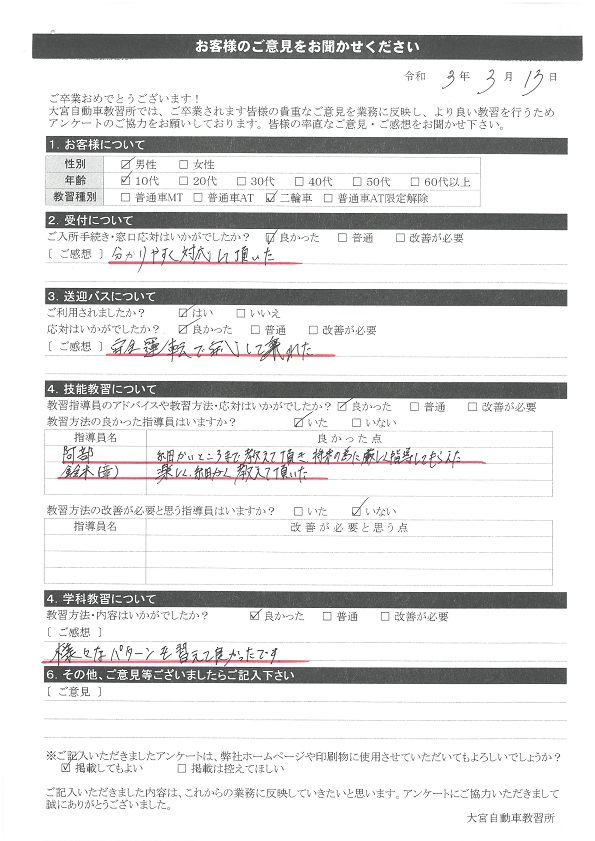 お客様のご意見をお聞かせください
令和 3 年 3 月 13 日
ご卒業おめでとうございます！
大宮自動車教習所では、ご卒業されます皆様の貴重なご意見を業務に反映し、より良い教習を行うため
アンケートのご協力をお願いしております。皆様の率直なご意見・ご感想をお聞かせ下さい。
1. お客様について
性別 ☑男性 □女性
年齢 ☑10代 □20代 □30代 □40代 □50代 □60代以上
教習種別 □普通車MT □普通車AT ☑二輪車 □普通車AT限定解除
2. 受付について
ご入所手続き・窓口応対はいかがでしたか？ ☑良かった □普通 □改善が必要
[ ご感想 ] 分かりやすく対応して頂いた
3. 送迎バスについて
ご利用されましたか？ ☑はい □いいえ
応対はいかがでしたか？ ☑良かった □普通 □改善が必要
[ ご感想 ] 安全運転で安心して乗れた
4. 技能教習について
教習指導員のアドバイスや教習方法・応対はいかがでしたか？ ☑良かった □普通 □改善が必要
教習方法の良かった指導員はいますか？ ☑いた □いない
指導員名 良かった点
阿部 細かいところまで教えて頂き 将来の為に厳しく指導してもらえた
鈴木(章) 楽しく、細かく教えて頂いた
教習方法の改善が必要と思う指導員はいますか？ □いた ☑いない
指導員名 改善が必要と思う点
4. 学科教習について
教習方法・内容はいかがでしたか？ ☑良かった □普通 □改善が必要
[ ご感想 ]
様々なパターンを習えて良かったです
6. その他、ご意見等ございましたらご記入下さい
[ ご意見 ]
※ご記入いただきましたアンケートは、弊社ホームページや印刷物に使用させていただいてもよろしいでしょうか？
☑掲載してもよい □掲載は控えてほしい
ご記入いただきました内容は、これからの業務に反映していきたいと思います。アンケートにご協力いただきまして
誠にありがとうございました。
大宮自動車教習所